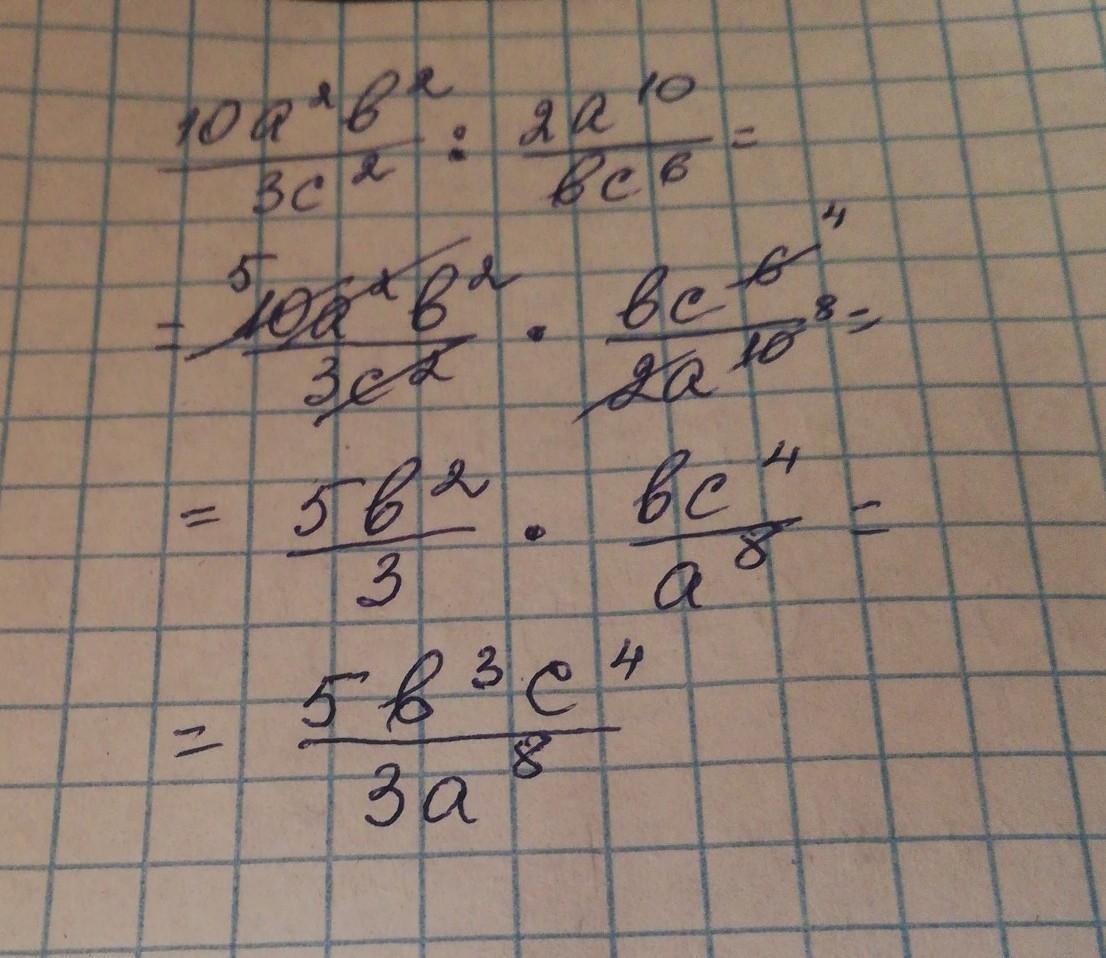 10a²b²/3c² : 2a¹⁰/bc⁶ =
= ⁵10a²b²/3c² · bc⁶ ⁴/2a¹⁰ ⁸ =
= 5b²/3 · bc⁴/a⁸ =
= 5b³c⁴/3a⁸